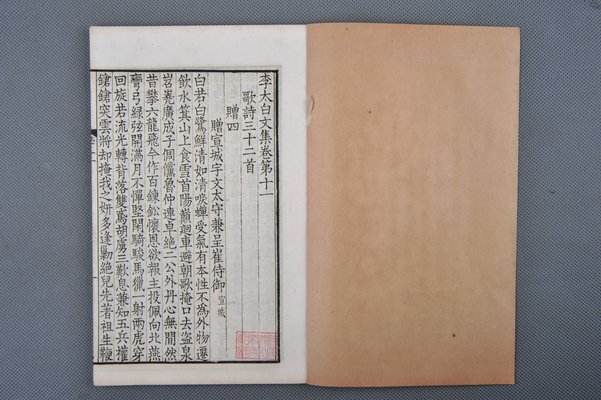 李太白文集卷第十一
歌詩三十二首
贈四
贈宣城宇文太守兼呈崔侍御宣城
白若白鷺鮮清如清唳蟬受氣有本性不為外物遷
飲水箕山上食雪首陽巔迴車避朝歌掩口去盜泉
岧嶤廣成子倜儻魯仲連卓絕二公外丹心無間然
昔攀六龍飛今作百鍊鉛懷恩欲報主投佩向北燕
彎弓綠弦開滿月不憚堅閑騎駿馬獵一射兩虎穿
回旋若流光轉背落雙鳶胡虜三歎息兼知五兵權
鎗鎗突雲將却掩我之妍多逢勦絕兒先著祖生鞭